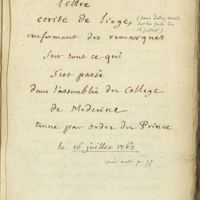 Lettre
ecrite de Liege
renfermant des remarques
Sur tout ce qui
S'est passé
dans l'assemblée du College
de Medecine
tenue par ordre du Prince
le 16 juillet 1762